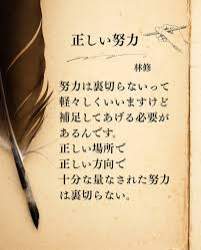 正しい努力
林修
努力は裏切らないって
軽々しくいいますけど
補足してあげる必要が
あるんです。
正しい場所で
正しい方向で
十分な量なされた努力
は裏切らない。